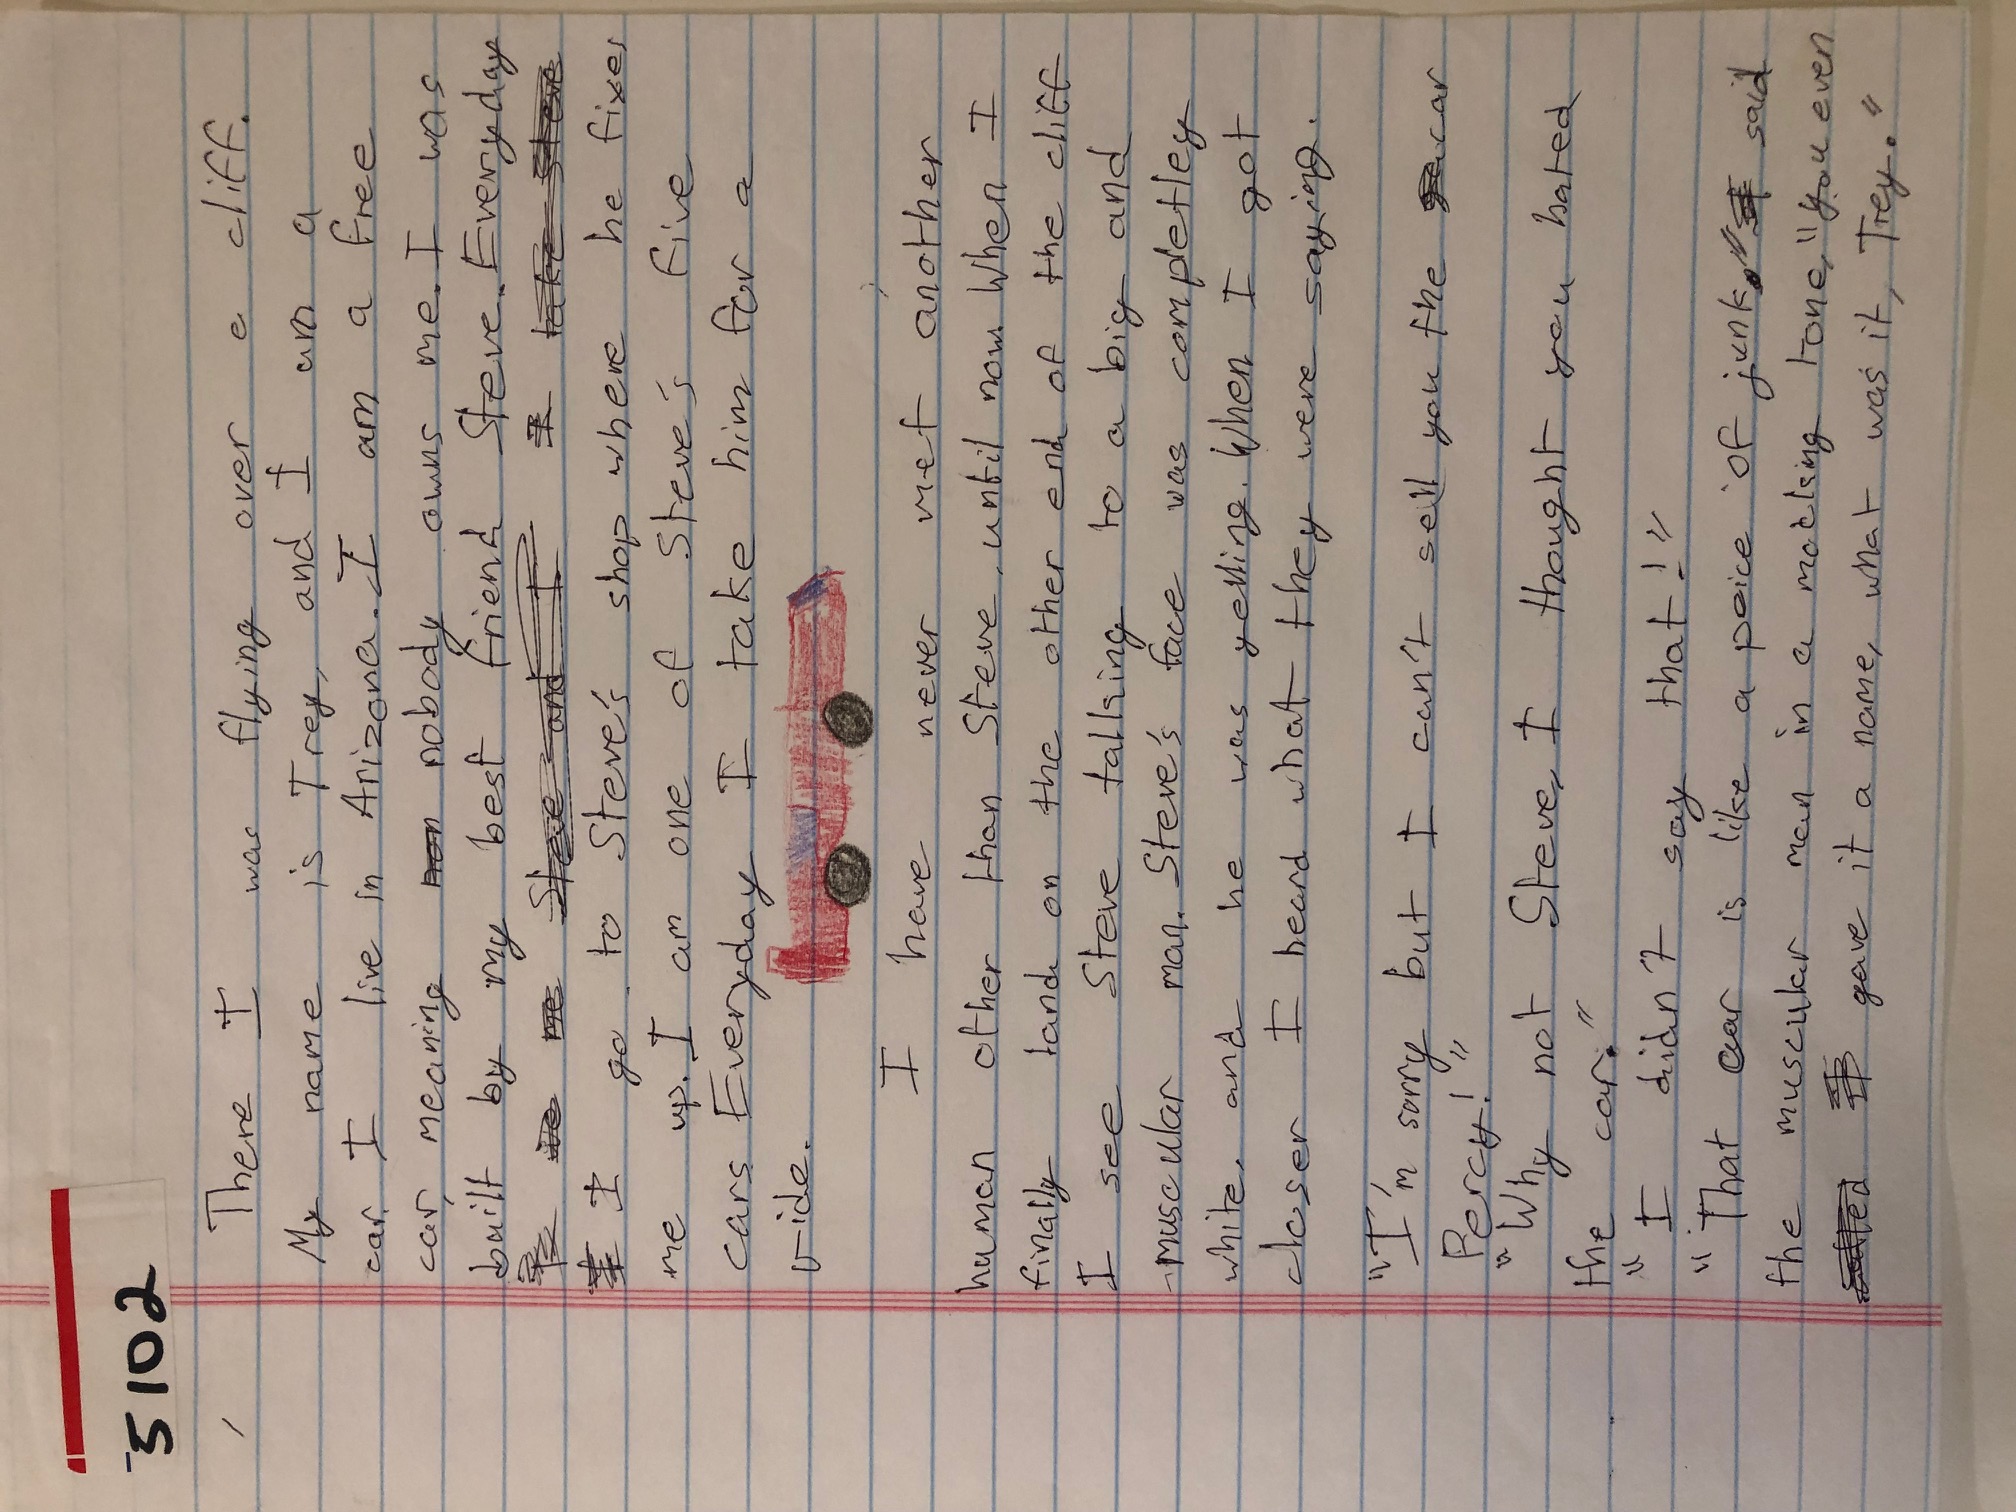 5102
There I was flying over a cliff.
My name is Trey, and I am a
car. I live in Arizona. I am a free
car, meaning nobody owns me. I was
built by my best friend Steve. Everyday
Steve and I I take Steve
I go to Steve's shop where he fixes
me up. I am one of Steve's five
cars Everyday I take him for a
ride.
I have never met another
human other than Steve, until now. When I
finally land on the other end of the cliff
I see Steve talking to a big and
muscular man. Steve's face was completley
white, and he was yelling. When I got
closer I heard what they were saying.
"I'm sorry but I can't sell you the car
Percy!"
"Why not Steve, I thought you hated
the car."
"I didn't say that!"
"That car is like a peice of junk," said
the muscular man in a mocking tone, "you even
gave it a name, what was it, Trey."